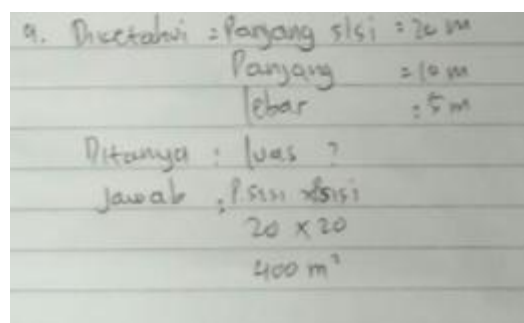 9. Diketahui : Panjang sisi = 20 m
Panjang = 10 m
lebar : 5 m
Ditanya : luas ?
Jawab : P.sisi x sisi
20 x 20
400 m²